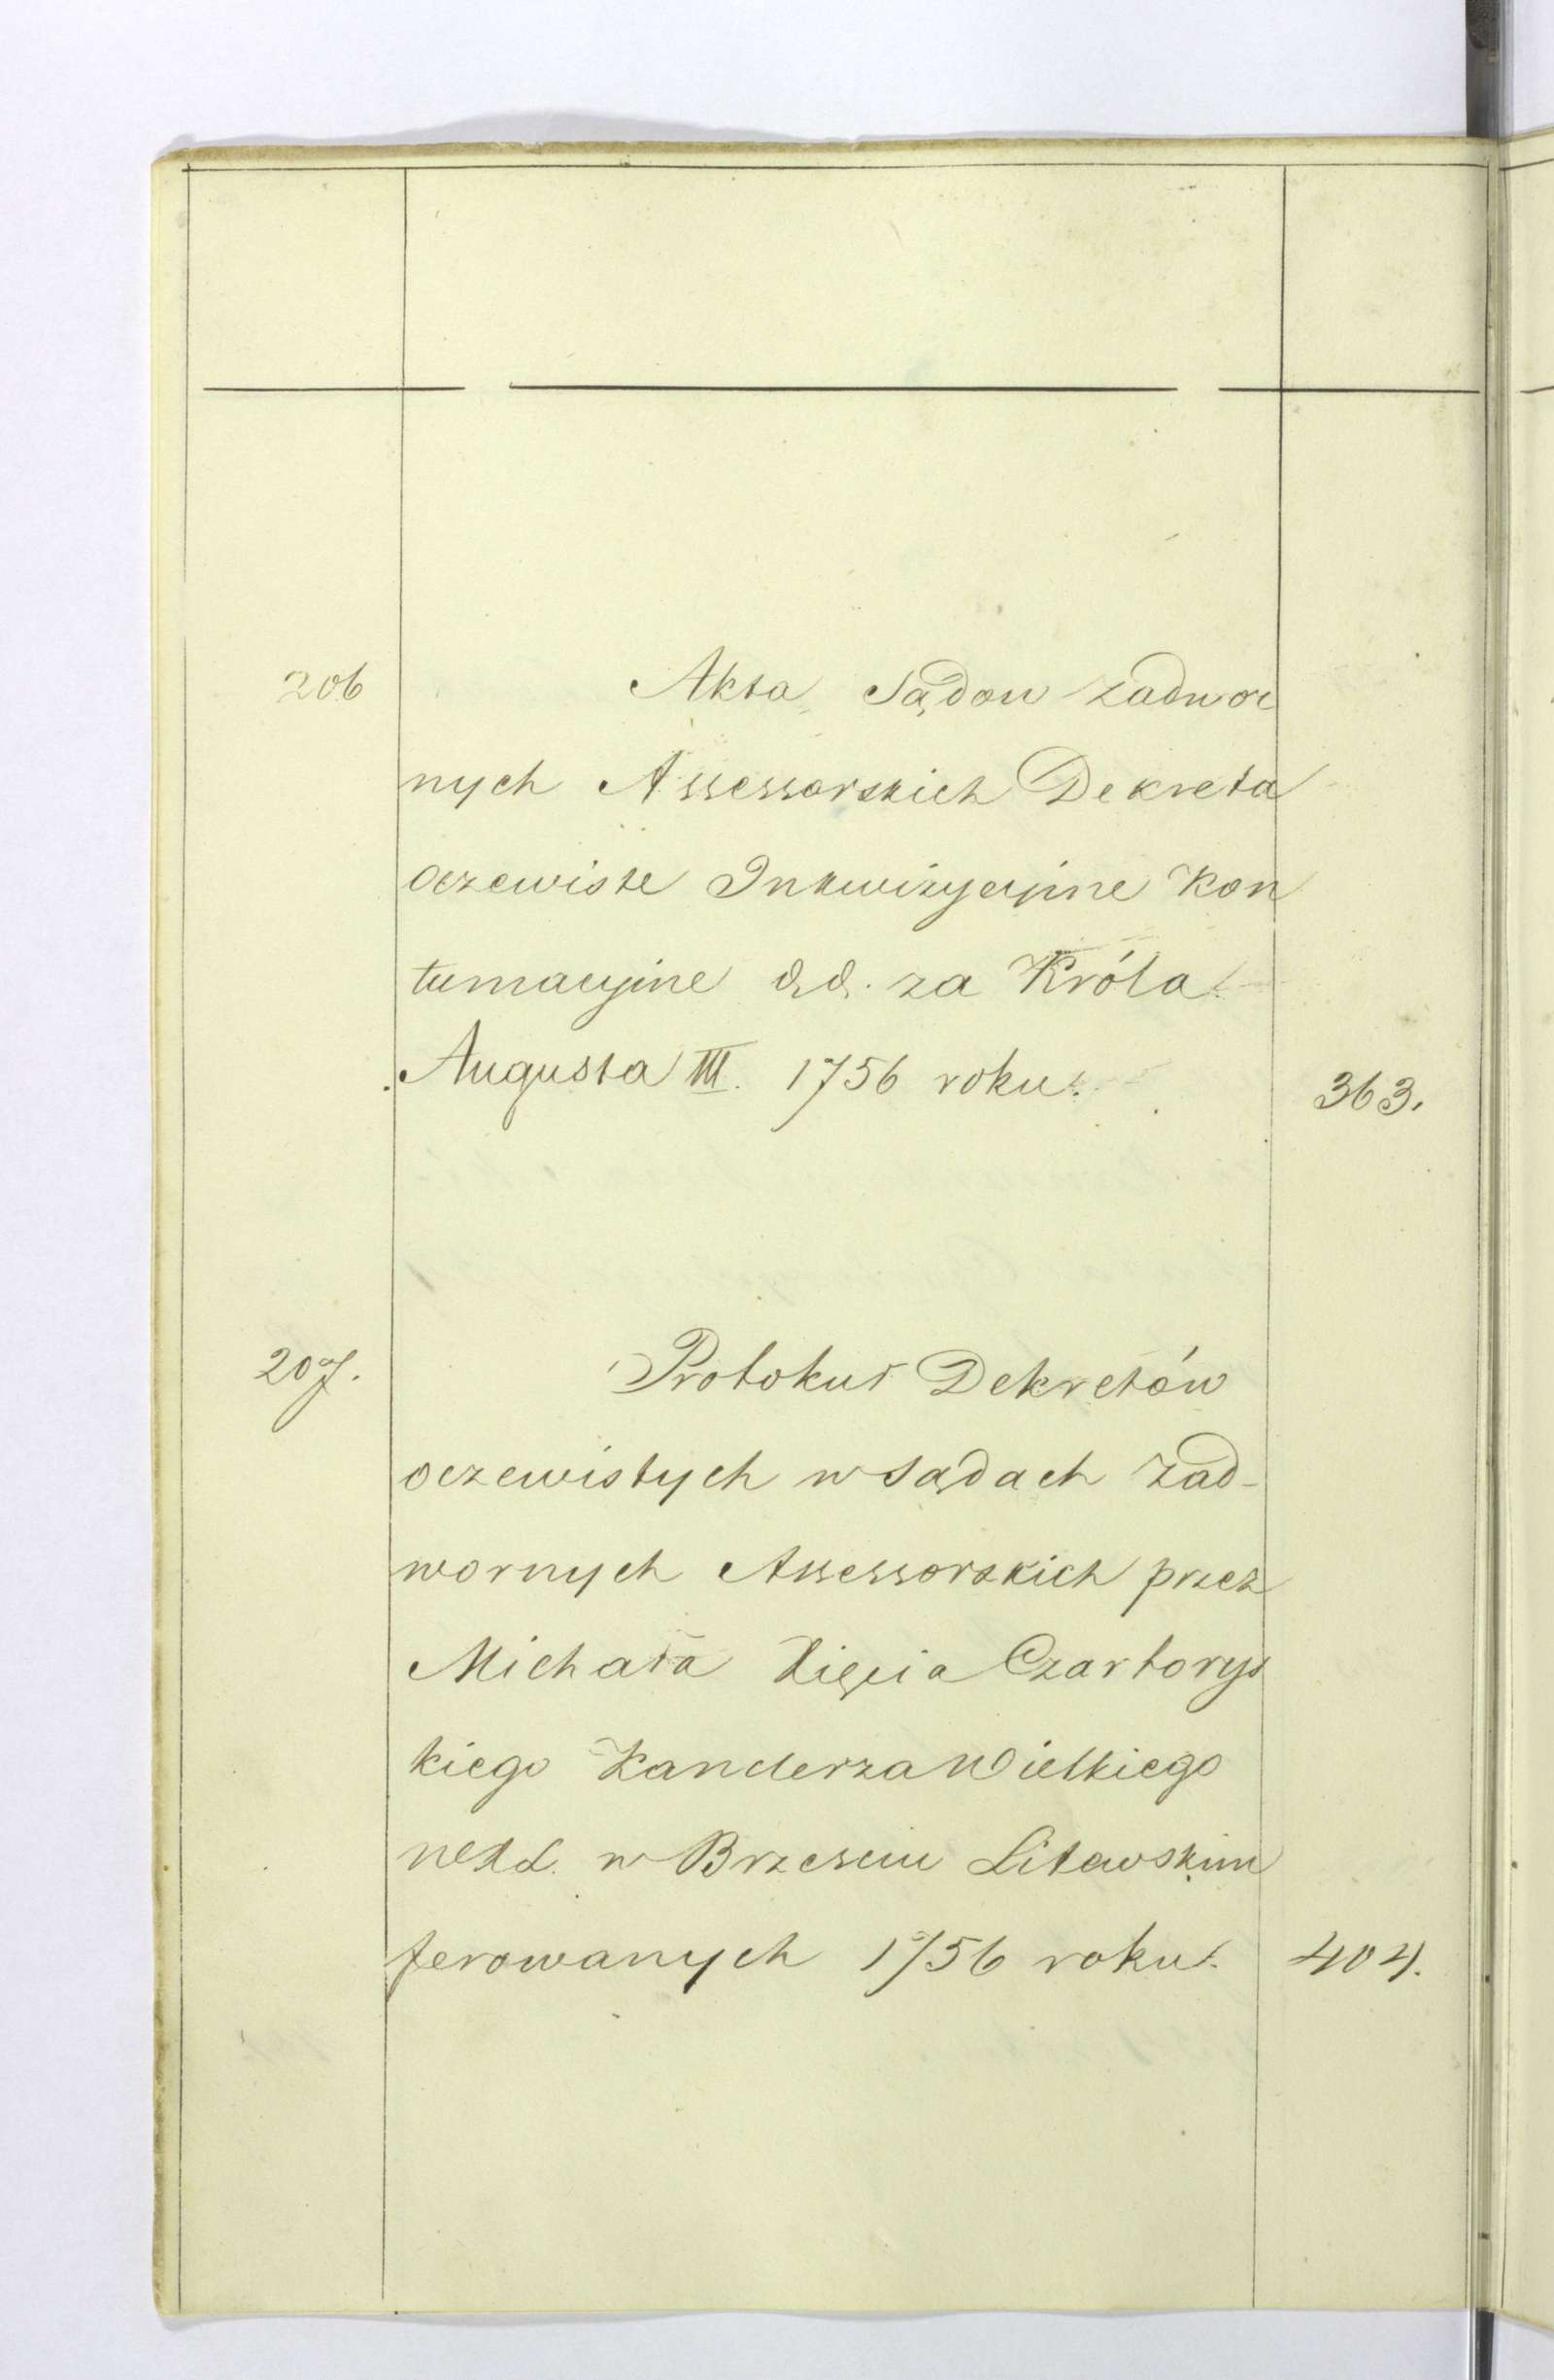 206 Akta Sądow Zadwor
nych Assessorskich Dekreta
oczewiste Inkwizycyine Kon
tumacyine za Króla
Augusta III. 1756 roku. 363.
207. Protokuł Dekretów
oczewistych w Sądach Zad-
wornych Assessorskich przez
Michała Xięcia Czartorys
kiego Kanclerza Wielkiego
w Brzesciu Litewskim
ferowanych 1756 roku. 404.